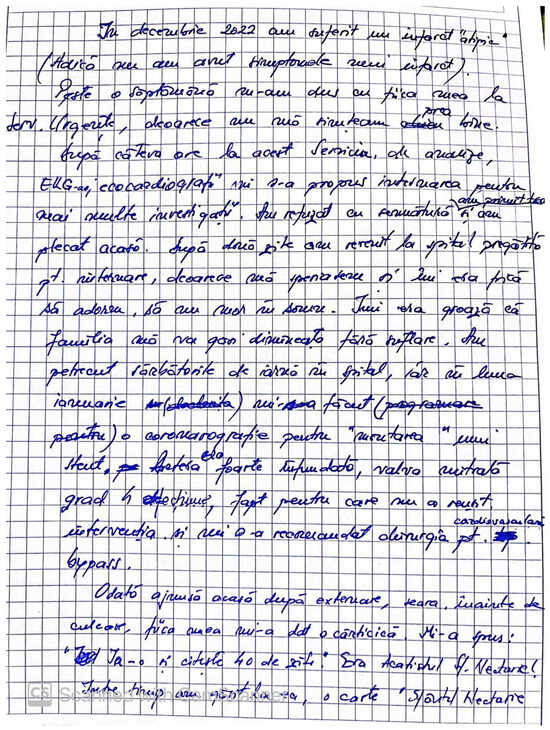 În decembrie 2022 am suferit un infarct "atipic"
(Adică nu am avut simptomele unui infarct).
Peste o săptămână m-am dus cu fiica mea la
prea
Serv. Urgențe, deoarece nu mă simțeam bine.
După câteva ore la acest Serviciu, de analize,
EKG-uri, ecocardiografii mi s-a propus internarea pentru
mai multe investigații. Am refuzat cu semnătură și am
plecat acasă. După două zile am revenit la spital pregătită
pt. internare, deoarece mă speriasem și îmi era frică
să adorm, să nu mor în somn. Îmi era groază că
familia mă va găsi dimineață fără suflare. Am
petrecut sărbătorile de iarnă în spital, iar în luna
ianuarie mi- făcut
o coronarografie pentru "montarea" unui
stent. Artera era foarte înfundată, valva mitrală
grad 4 , fapt pentru care nu a reușit
intervenția și mi s-a recomandat chirurgia cardiovasculară pt.
bypass.
Odată ajunsă acasă după externare, seara, înainte de
culcare, fiica mea mi-a dat o cărticică. Mi-a spus:
"Ia-o și citește 40 de zile! Era Acatistul Sf. Nectarie!
Între timp am găsit la ea, o carte "Sfântul Nectarie
CS Scanned with CamScanner